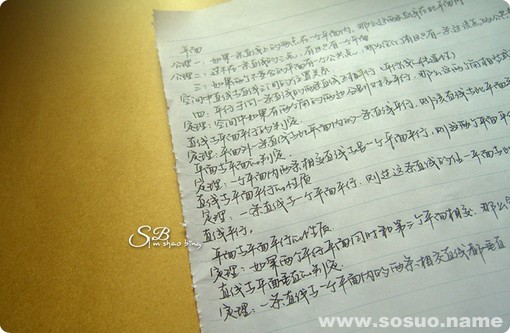 平面
公理一:如果一条直线上的两点在一个平面内,那么这条直线在此平面内
公理二:过不在一条直线的三点,有且只有一个平面
三:如果两个不重合的平面有一个公共点,那么它们有且只有一条过该点的公共
空间中直线与直线之间的位置关系
四:平行于同一条直线的两条直线互相平行
定理:空间中如果有两个角的两边分别对应平行,那么这两个角相等或
直线与平面平行的判定
定理:平面外一条直线与此平面内的一条直线平行,则该直线与此平面平
平面与平面的判定
定理:一个平面内两条相交直线与另一个平面平行,则这两个平面平行
直线与平面平行的性质
定理:一条直线与一个平面平行,则过这条直线的任一平面与
直线平行。
平面与平面平行的性质
定理:如果两个平行平面同时和第三个平面相交,那么
直线与平面垂直的判定
定理:一条直线与一个平面内的两条相交直线都垂直
SB
Sim shao bing
www.sosuo.name